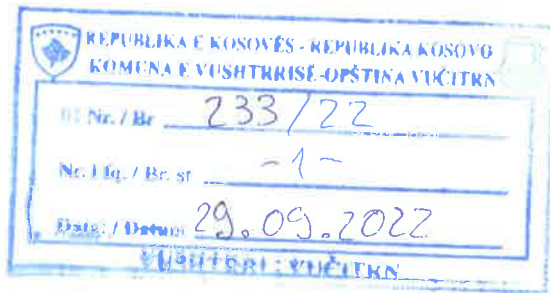 REPUBLIKA E KOSOVËS - REPUBLIKA KOSOVO
KOMUNA E VUSHTRRISË-OPŠTINA VUČITRN
01 Nr. / Br 233/22
Nr. i fq. / Br. st -1-
Data: / Datum 29.09.2022
VUSHTRRI: VUČITRN